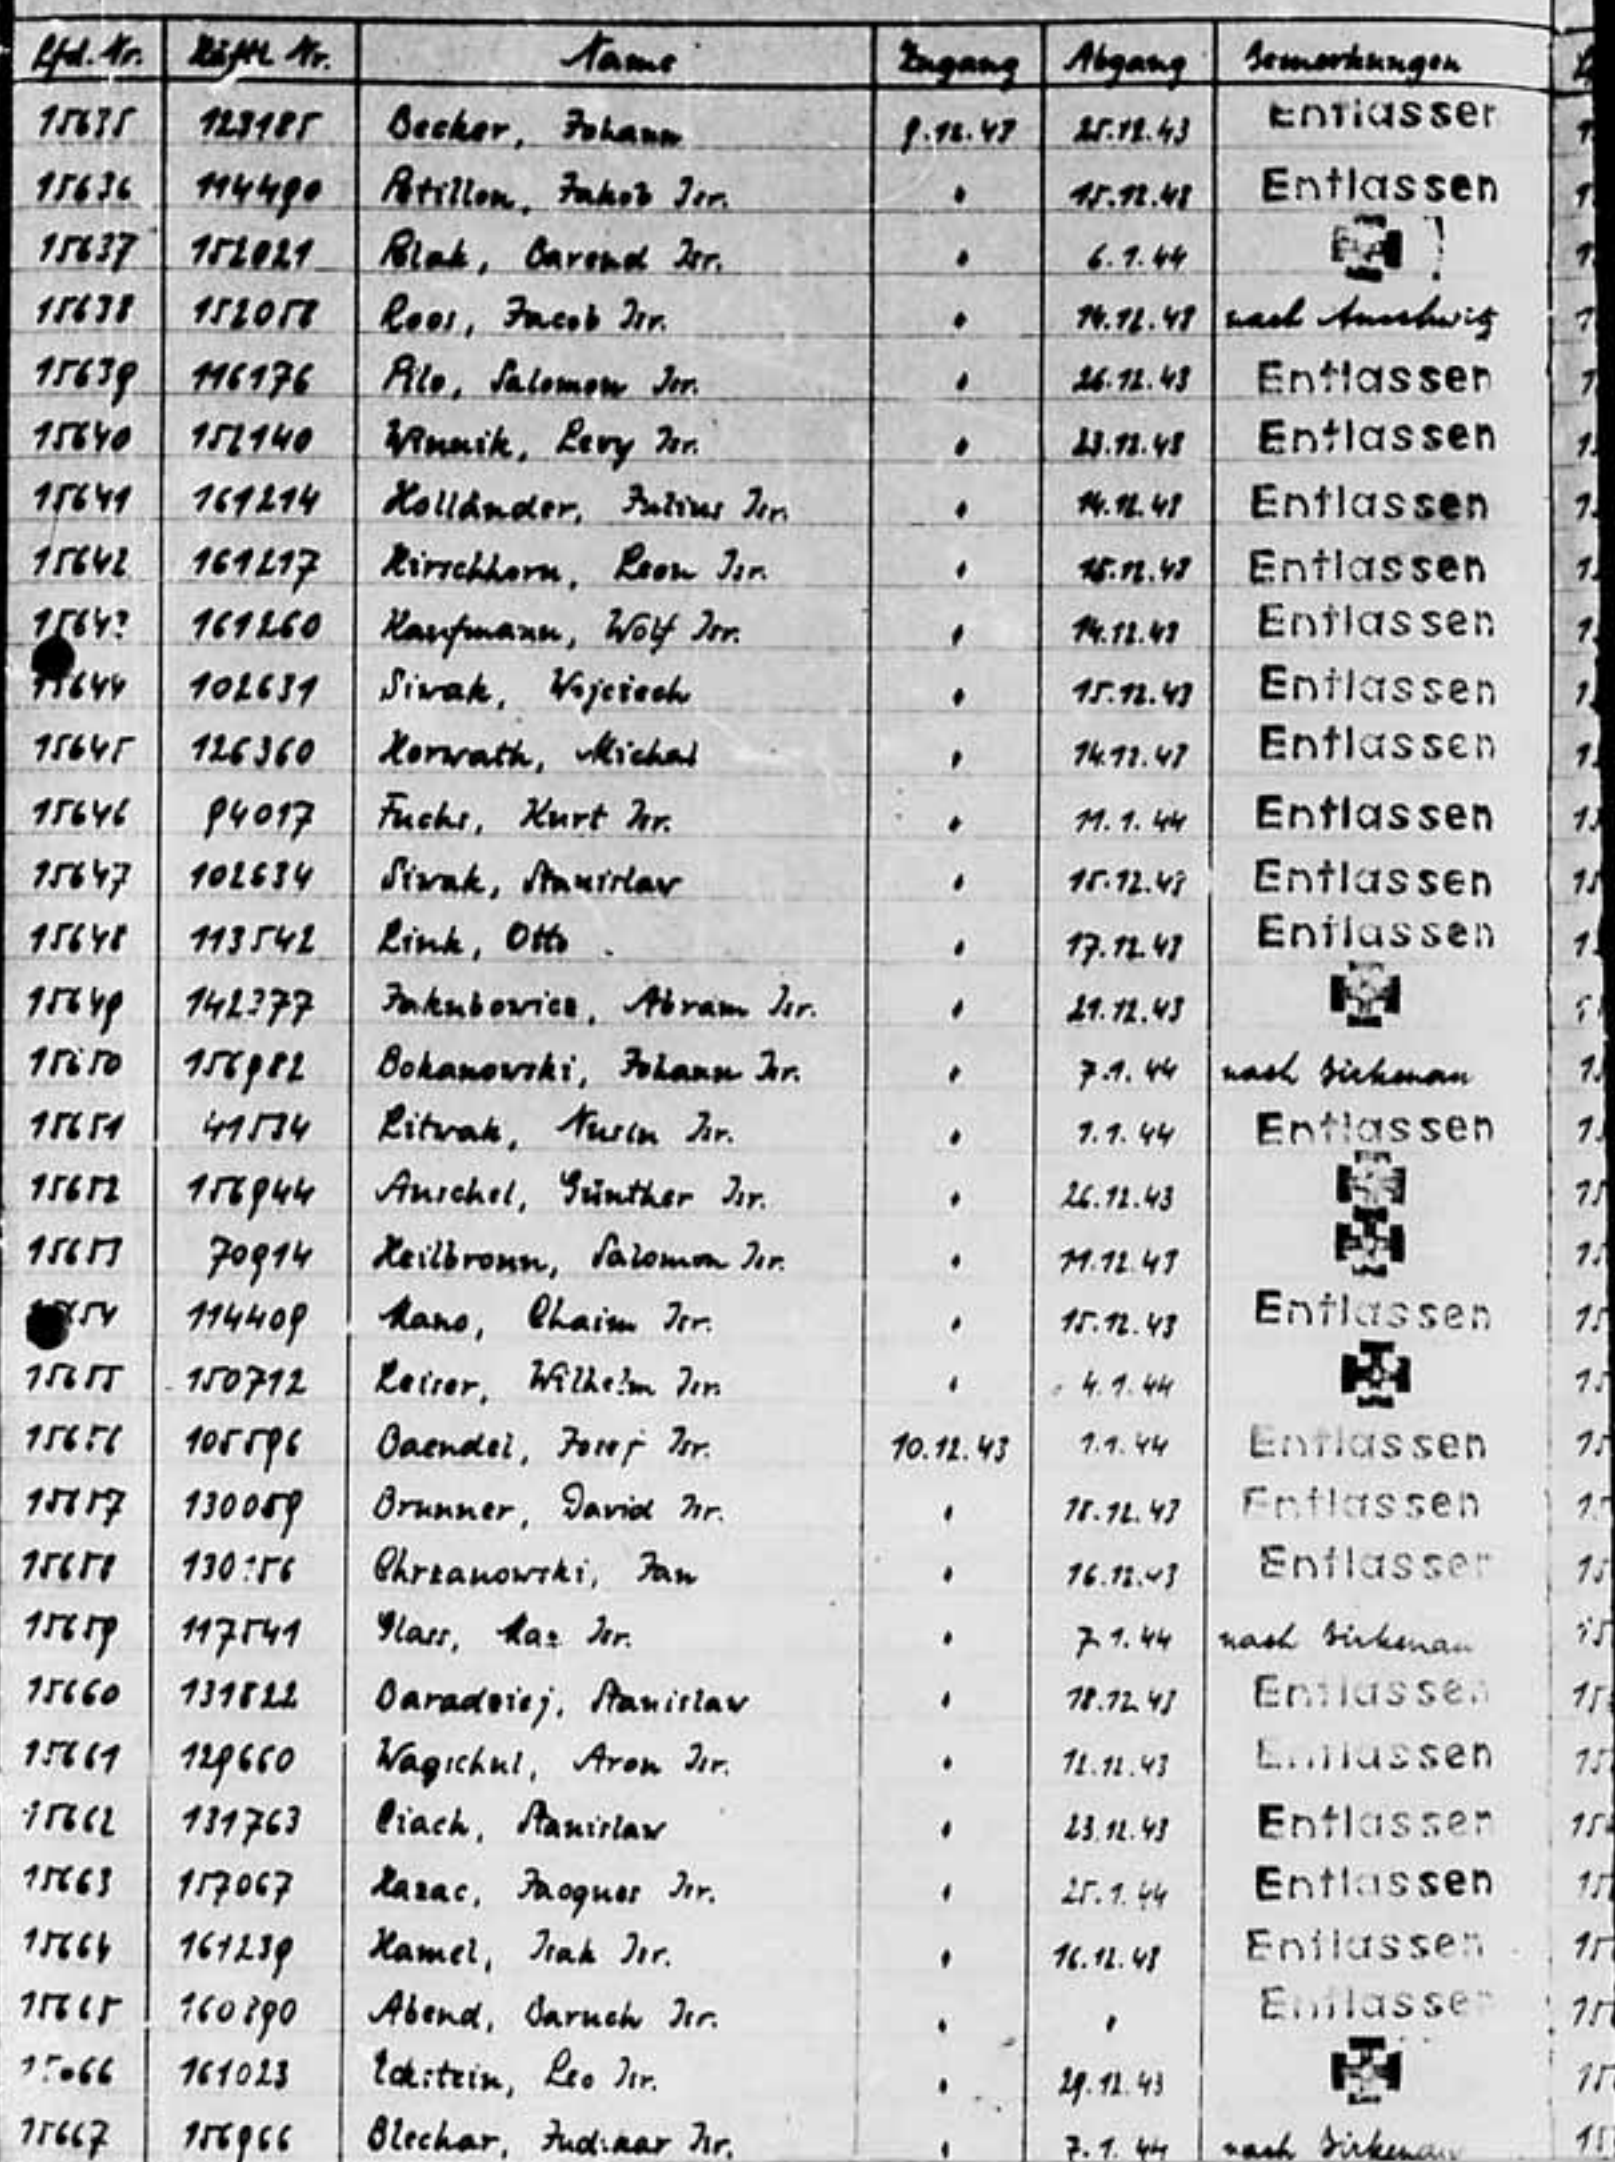 Lfd. Nr. Häftl. Nr. Name Zugang Abgang Bemerkungen
15635 123185 Becker, Johann 9.12.43 25.12.43 Entlassen
15636 114490 Petillon, Jakob Isr. " 15.12.43 Entlassen
15637 152021 Blak, Barend Isr. " 6.1.44
15638 152058 Roos, Jacob Isr. " 14.12.43 nach Auschwitz
15639 116176 Pilo, Salomon Isr. " 26.12.43 Entlassen
15640 152140 Winnik, Levy Isr. " 23.12.43 Entlassen
15641 161214 Holländer, Julius Isr. " 14.12.43 Entlassen
15642 161217 Hirschhorn, Leon Isr. " 15.12.43 Entlassen
15643 161260 Kaufmann, Wolf Isr. " 14.12.43 Entlassen
15644 102631 Siwak, Wojciech " 15.12.43 Entlassen
15645 126360 Horwath, Michal " 14.12.43 Entlassen
15646 94017 Fuchs, Kurt Isr. " 11.1.44 Entlassen
15647 102634 Siwak, Stanislaw " 15.12.43 Entlassen
15648 113542 Link, Otto " 17.12.43 Entlassen
15649 142377 Jakubowicz, Abram Isr. " 21.12.43
15650 156982 Bokanowski, Johann Isr. " 7.1.44 nach Birkenau
15651 41534 Litwak, Nusin Isr. " 1.1.44 Entlassen
15652 156944 Anschel, Günther Isr. " 26.12.43
15653 70914 Heilbronn, Salomon Isr. " 11.12.43
15654 114409 Mano, Chaim Isr. " 15.12.43 Entlassen
15655 150712 Leiser, Wilhelm Isr. " 4.1.44
15656 105596 Baendel, Josef Isr. 10.12.43 1.1.44 Entlassen
15657 130059 Brunner, David Isr. " 18.12.43 Entlassen
15658 Chrzanowski, Jan " 16.12.43 Entlassen
15659 117541 Glass, Max Isr. " 7.1.44 nach Birkenau
15660 131822 Baradziej, Stanislaw " 18.12.43 Entlassen
15661 129660 Wagschul, Aron Isr. " 12.12.43 Entlassen
15662 131763 Ciach, Stanislaw " 23.12.43 Entlassen
15663 157067 Hazac, Jacques Isr. " 25.1.44 Entlassen
15664 161239 Hamel, Isak Isr. " 16.12.43 Entlassen
15665 160390 Abend, Baruch Isr. " " Entlassen
15666 161023 Eckstein, Leo Isr. " 29.12.43
15667 156966 Blechar, Isr. " 7.1.44 nach Birkenau